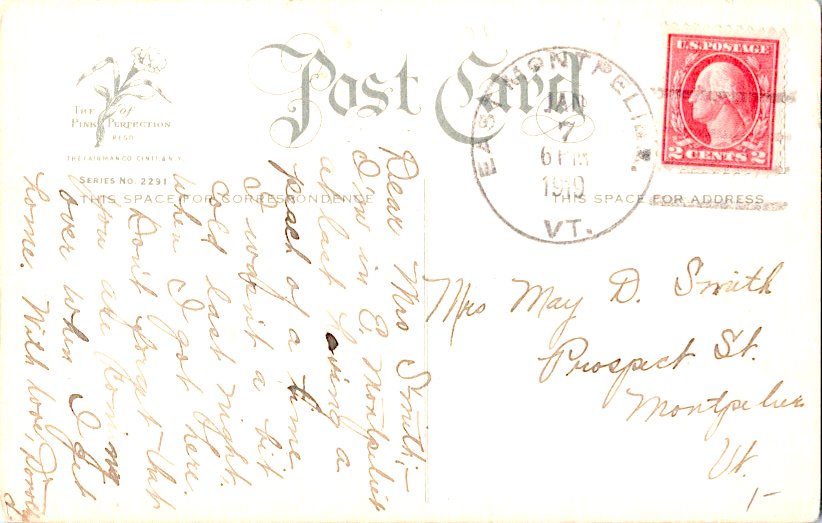 Post Card
The Pink of Perfection
REGD.
THE FAIRMAN CO. CINTI. & N.Y.
SERIES NO. 2291
THIS SPACE FOR CORRESPONDENCE
THIS SPACE FOR ADDRESS
EAST MONTPELIER.
JAN
7
6 PM
1919
VT.
U.S. POSTAGE
2 CENTS 2
Dear Mrs Smith:-
I'm in E. Montpelier
at last having a
peach of a time.
I wasn't a bit
cold last night
when I got here.
Don't forget that
you are coming
over when I get
home. With love,
Mrs May D. Smith
Prospect St.
Montpelier
Vt.